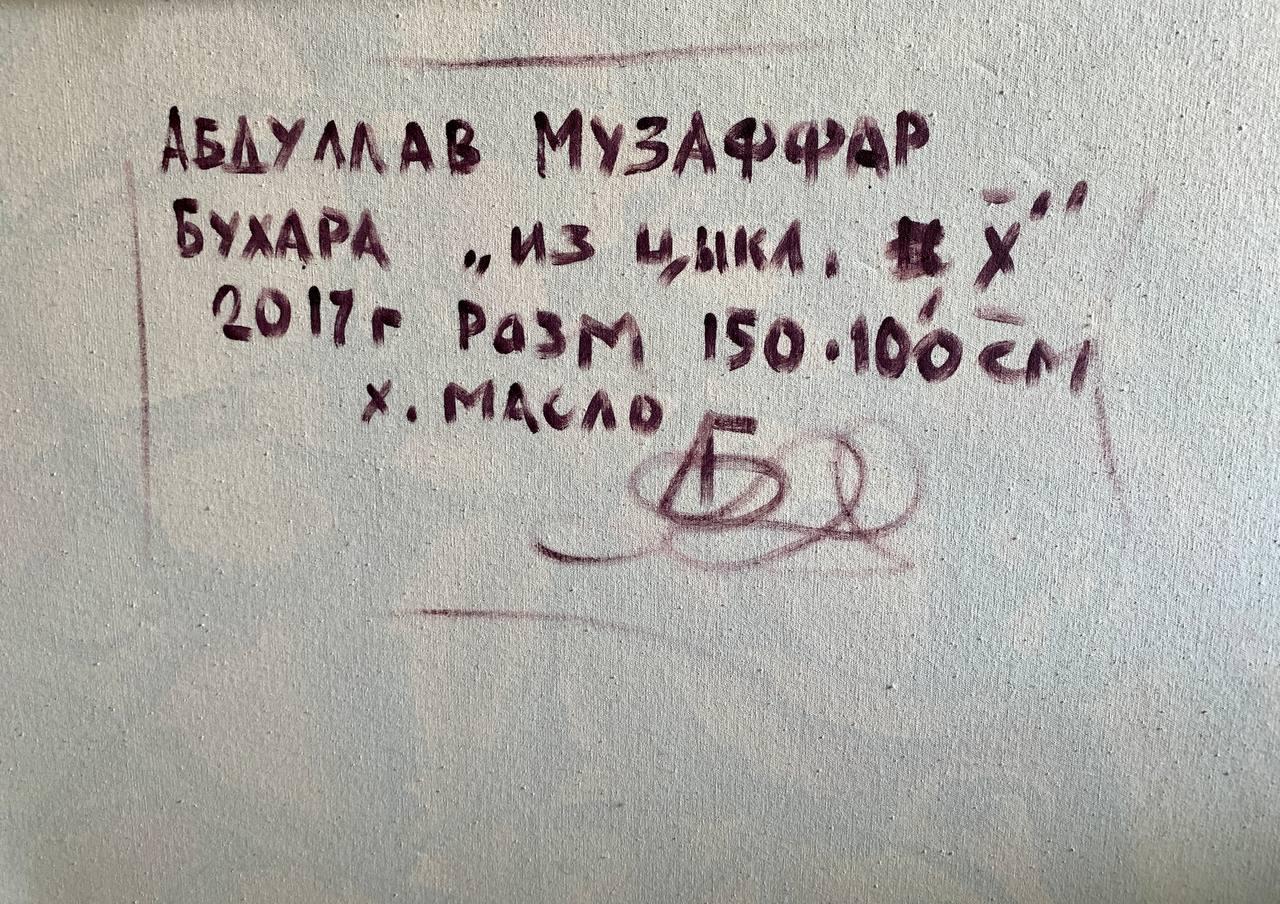 АБДУЛЛАВ МУЗАФФАР
БУХАРА „ИЗ ЦЫКЛ. X"
2017г РАЗМ 150·100 СМ
Х. МАСЛО